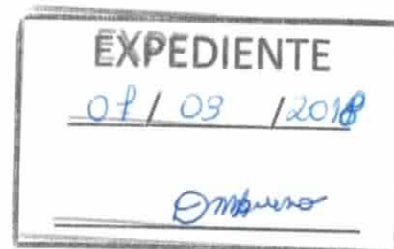 EXPEDIENTE
07 / 03 / 2018